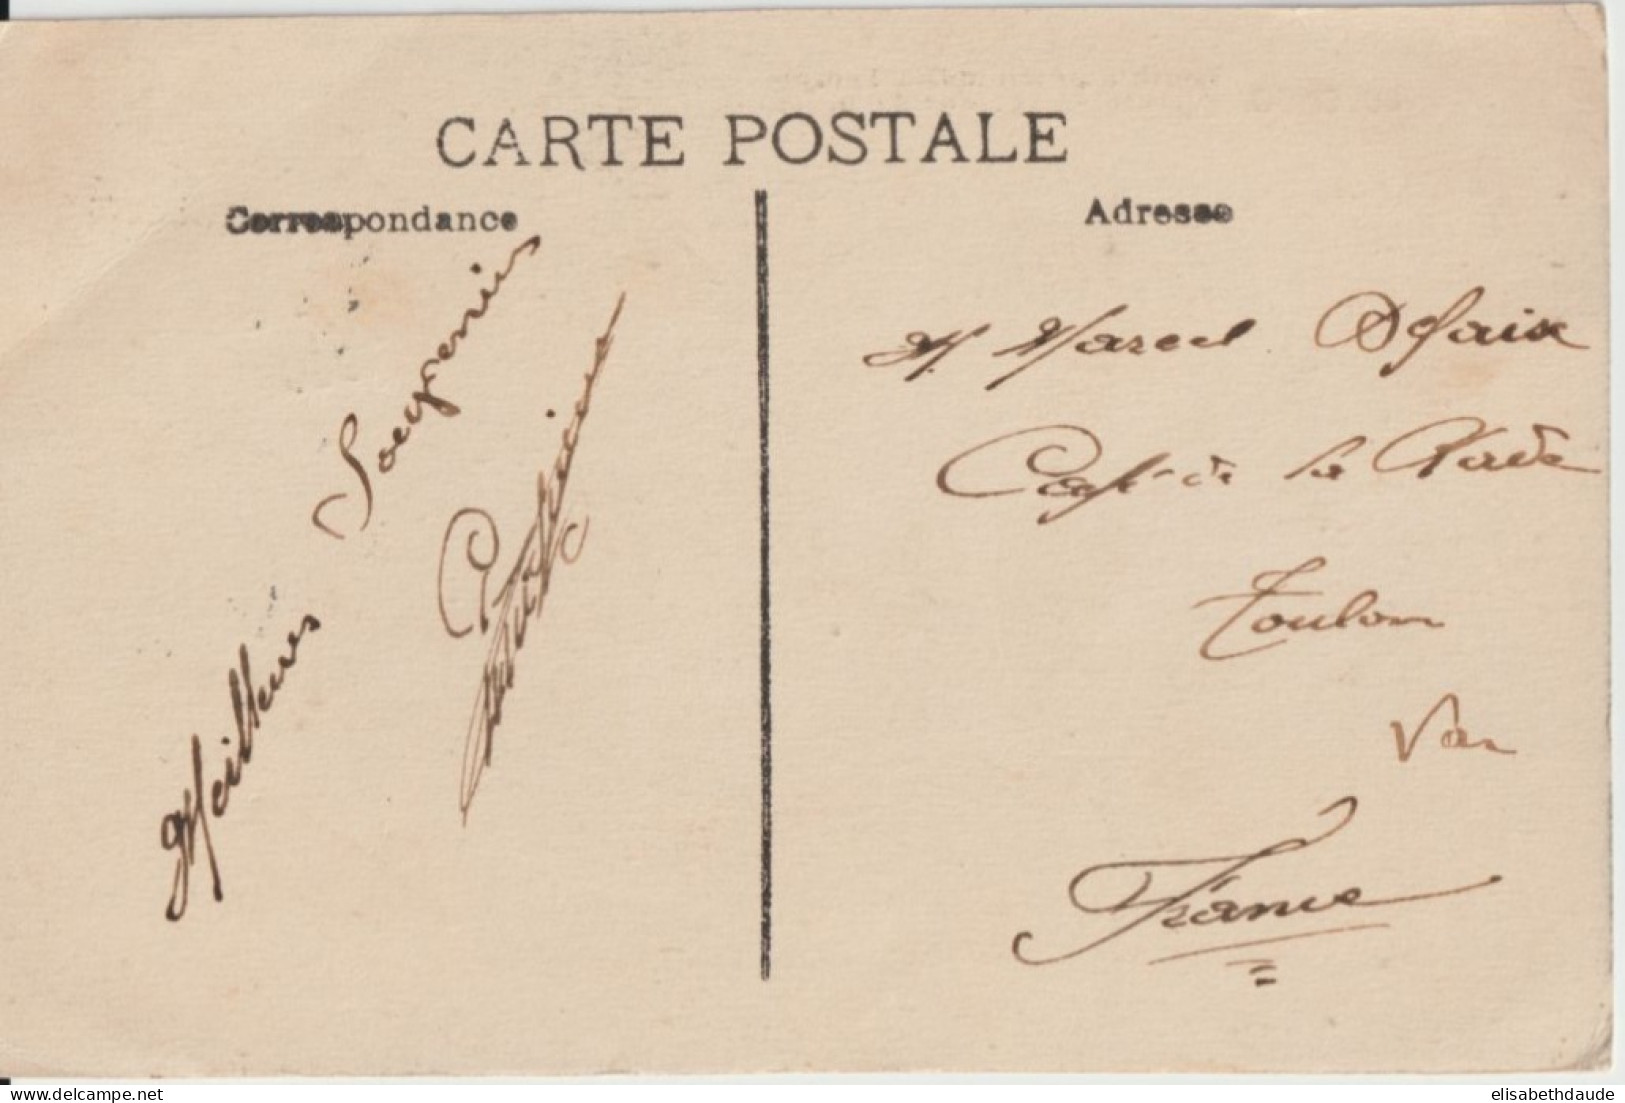 CARTE POSTALE
Correspondance
Adresse
Meilleurs Souvenirs
M. Marcel
Café de la Rade
Toulon
Var
France
www.delcampe.net
elisabethdaude